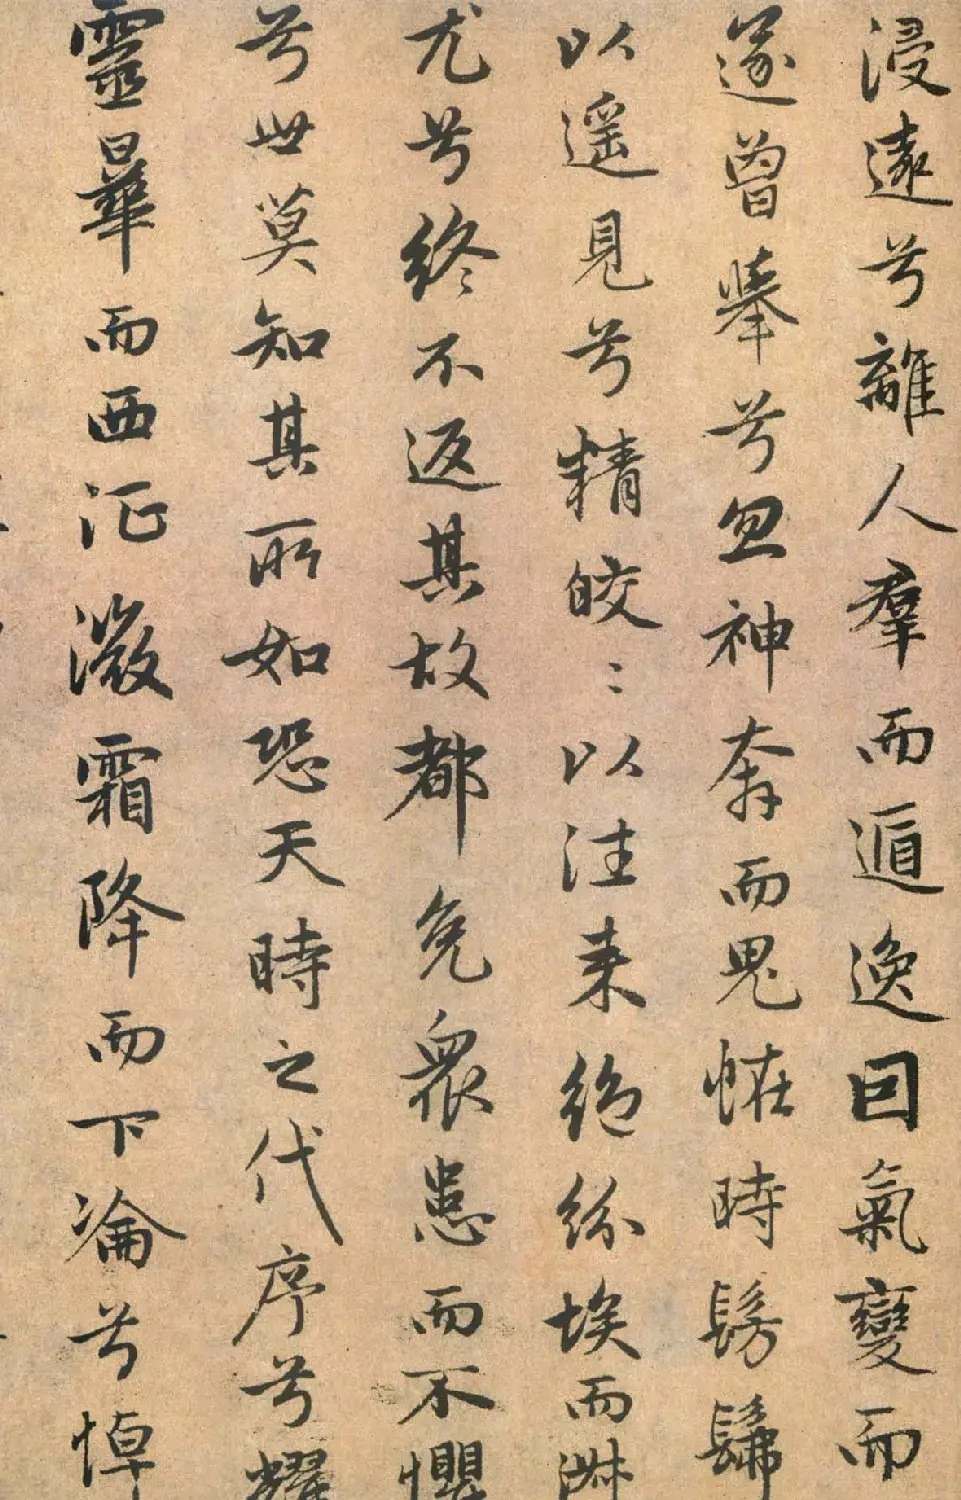 浸遠兮離人羣而遁逸回氣變而
遂曾舉兮忽神奔而鬼恠時髣髴
以遥見兮精皎〻以往来絶紛埃而淑
尤兮終不返其故都免衆患而不懼
兮世莫知其所如恐天時之代序兮耀
靈曅而西征微霜降而下淪兮悼